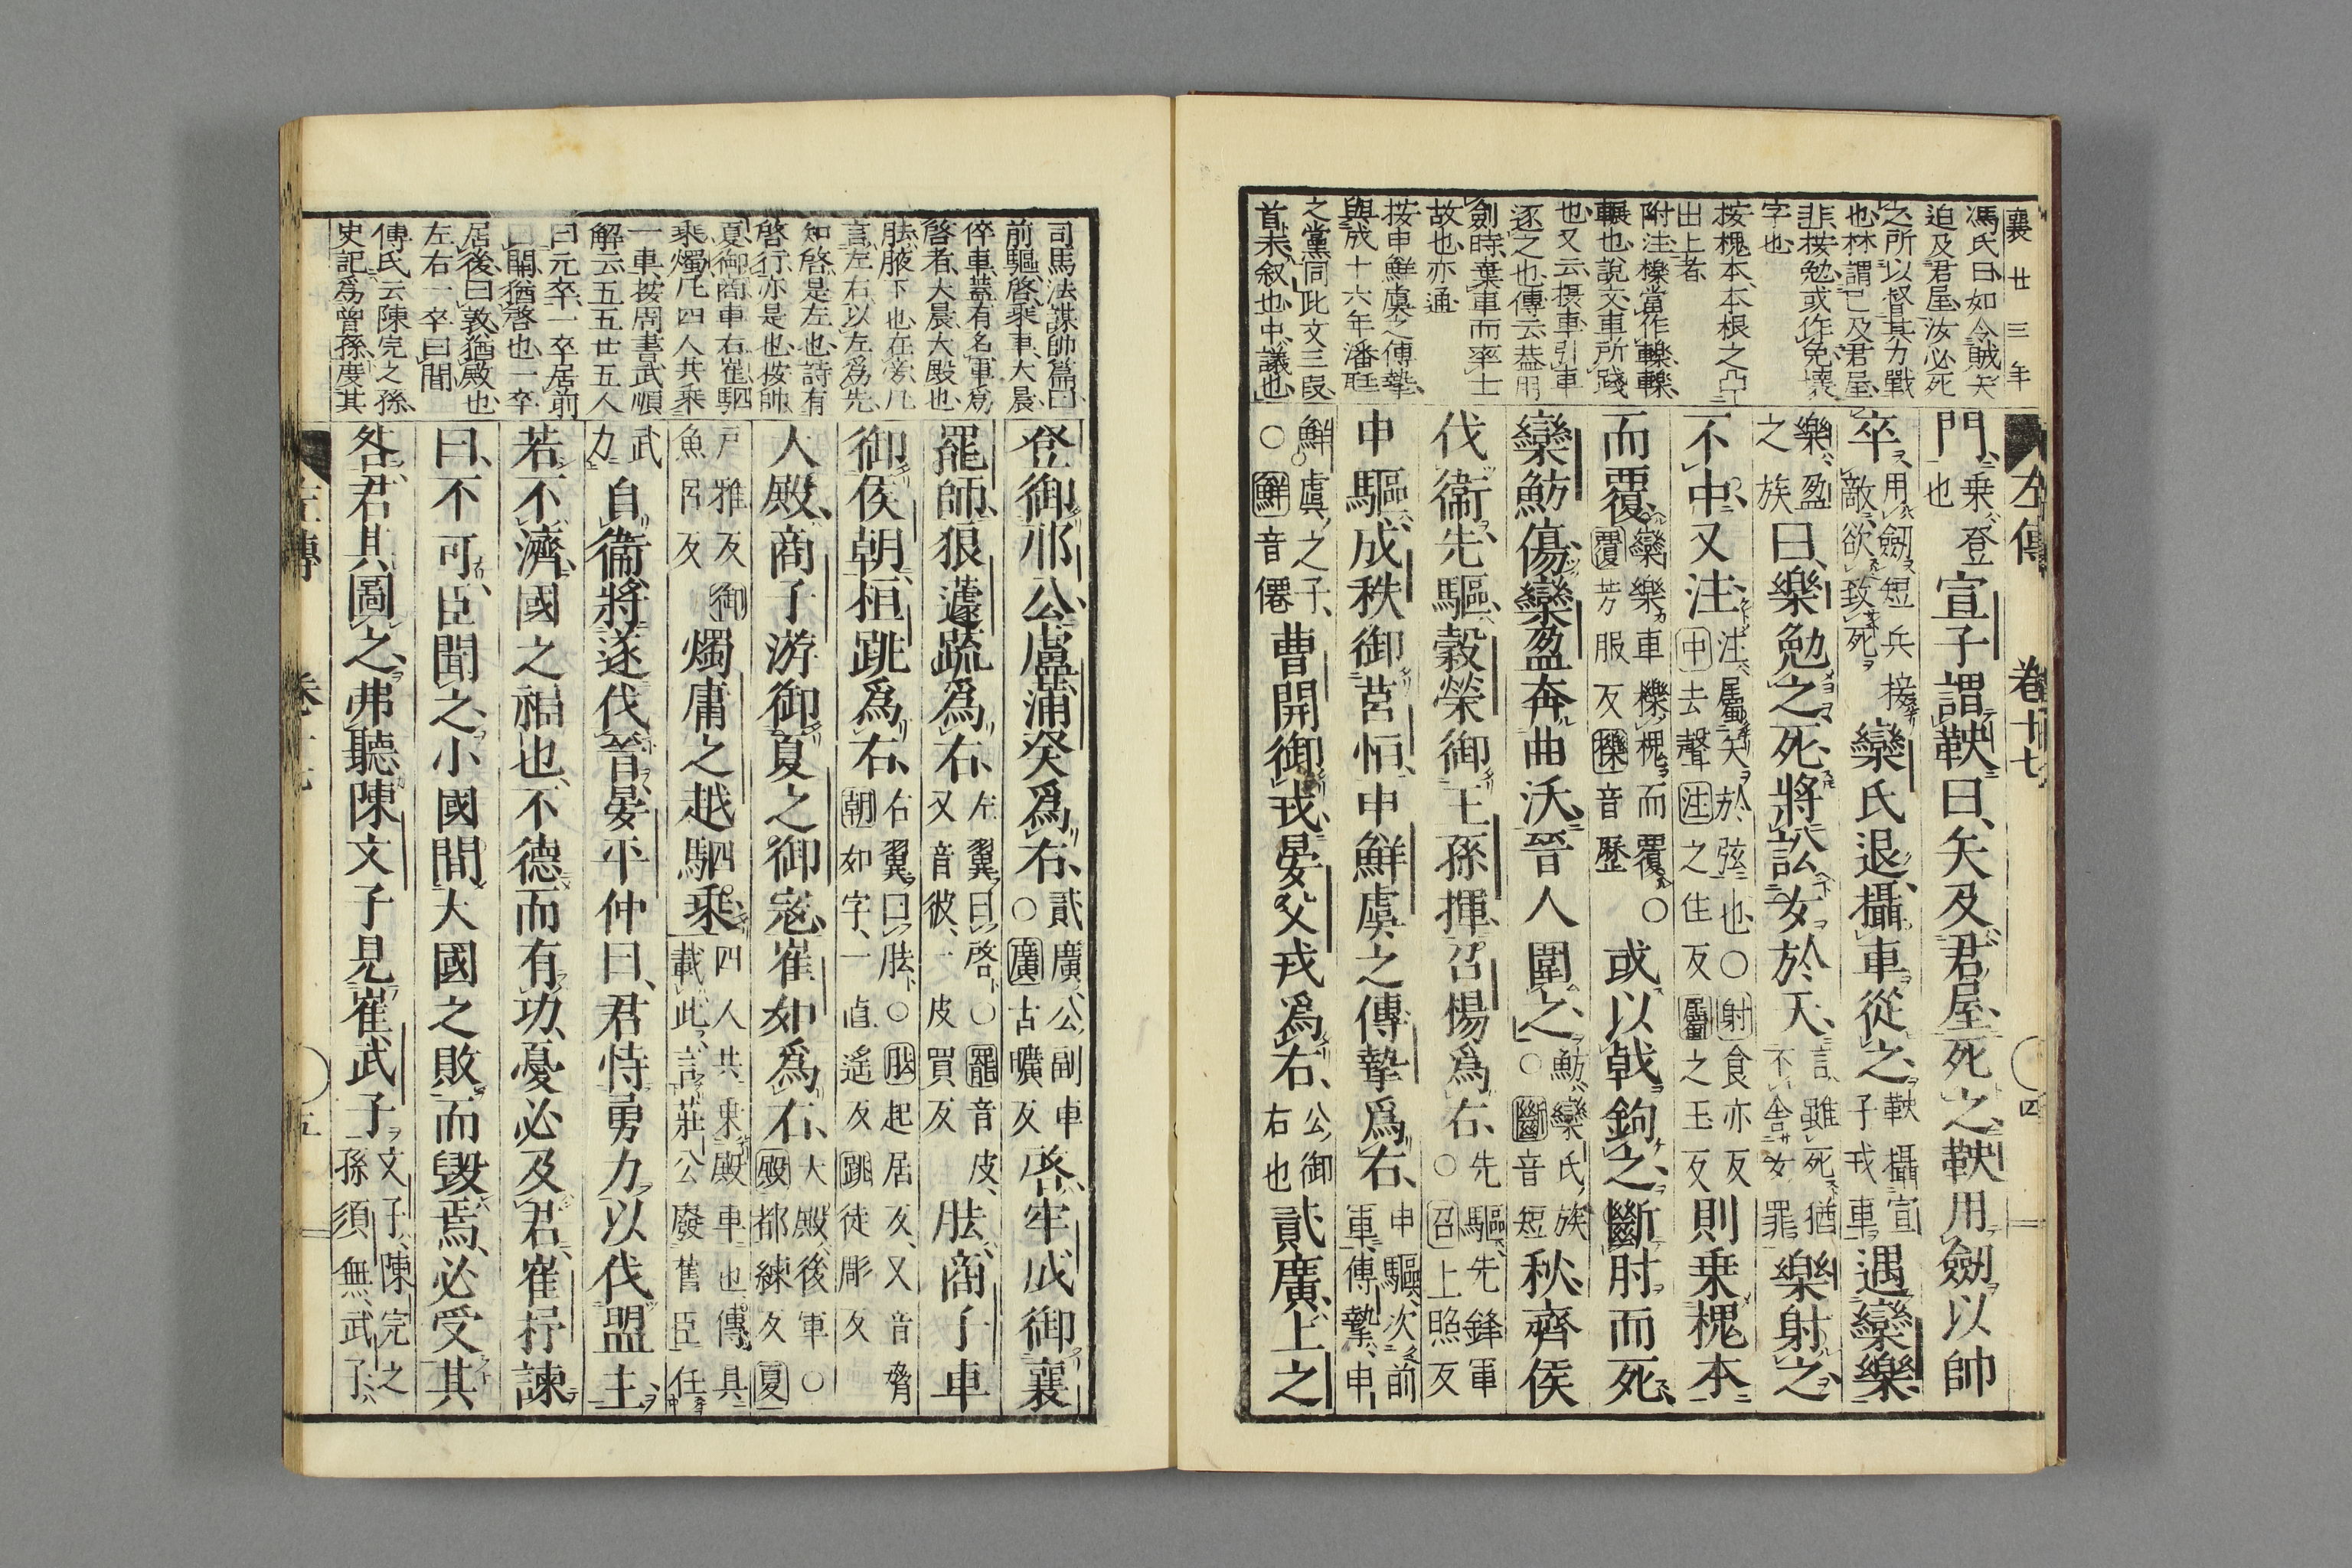 襄廿三年
馮氏曰如令賊矢
迫及君屋汝必死
之所以督其力戰
也林謂已及君屋
非按勉或作免壊
字也
按槐本本根之亞
出上者
附注櫟當作轢轢
輾也說文車所踐
也又云摂車引車
逐之也傳云葢用
劍時棄車而率士
故也亦通
按申鮮虞之傳摯
與成十六年潘尫
之黨同此文三段
首末叙也中議也
左傳 卷十七 四
門乗登
也宣子謂鞅曰矢及君屋死之鞅用劔以帥
卒用劔短兵接
敵欲致死欒氏退攝車從之鞅攝宣
子戎車遇欒樂
樂盈
之族曰樂勉之死將訟女於天言雖死猶
不舍女罪樂射之
不中又注注屬矢於弦也○射食亦反
中去聲注之住反屬之玉反則乗槐本
而覆欒樂車櫟槐而覆○
覆芳服反櫟音歷或以戟鉤之斷肘而死
欒魴傷欒盈奔曲沃晉人圍之魴欒氏族
○斷音短秋齊侯
伐衞先驅穀榮御王孫揮召楊爲右先驅先鋒軍
○召上照反
申驅成秩御莒恒申鮮虞之傳摯爲右申驅次前
軍傳摯申
鮮虞之子
○鮮音僊曹開御戎晏父戎爲右公御
右也貳廣上之
司馬法謀帥篇曰
前驅啓乘車大晨
倅車葢有名軍爲
啓者大晨大殿也
胠腋下也在旁凡
言左右以左爲先
知啓是左也詩有
啓行亦是也按帥
夏御商車右崔駟
乘燭凡四人共乘
一車按周書武順
解云五五廿五人
曰元卒一卒居前
曰開猶啓也一卒
居後曰敦猶殿也
左右一卒曰閭
傳氏云陳完之孫
史記爲曾孫度其
登御邢公盧蒲癸爲右貳廣公副車
○廣古曠反啓牢成御襄
罷師狼蘧疏爲右左翼曰啓○罷音皮
又音彼一皮買反胠商子車
御侯朝桓跳爲右右翼曰胠○胠起居反又音脅
朝如字一直遙反跳徒彫反
人殿商子游御夏之御寇崔如爲右大殿後軍○
殿都練反夏
戸雅反御
魚呂反燭庸之越駟乘四人共乘殿車也傳具
載此言莊公廢舊臣任
武
力自衞將遂伐晉晏平仲曰君恃勇力以伐盟主
若不濟國之福也不德而有功憂必及君崔杼諫
曰不可臣聞之小國間大國之敗而毀焉必受其
咎君其圖之弗聽陳文子見崔武子文子陳完之
孫須無武子
左傳 五